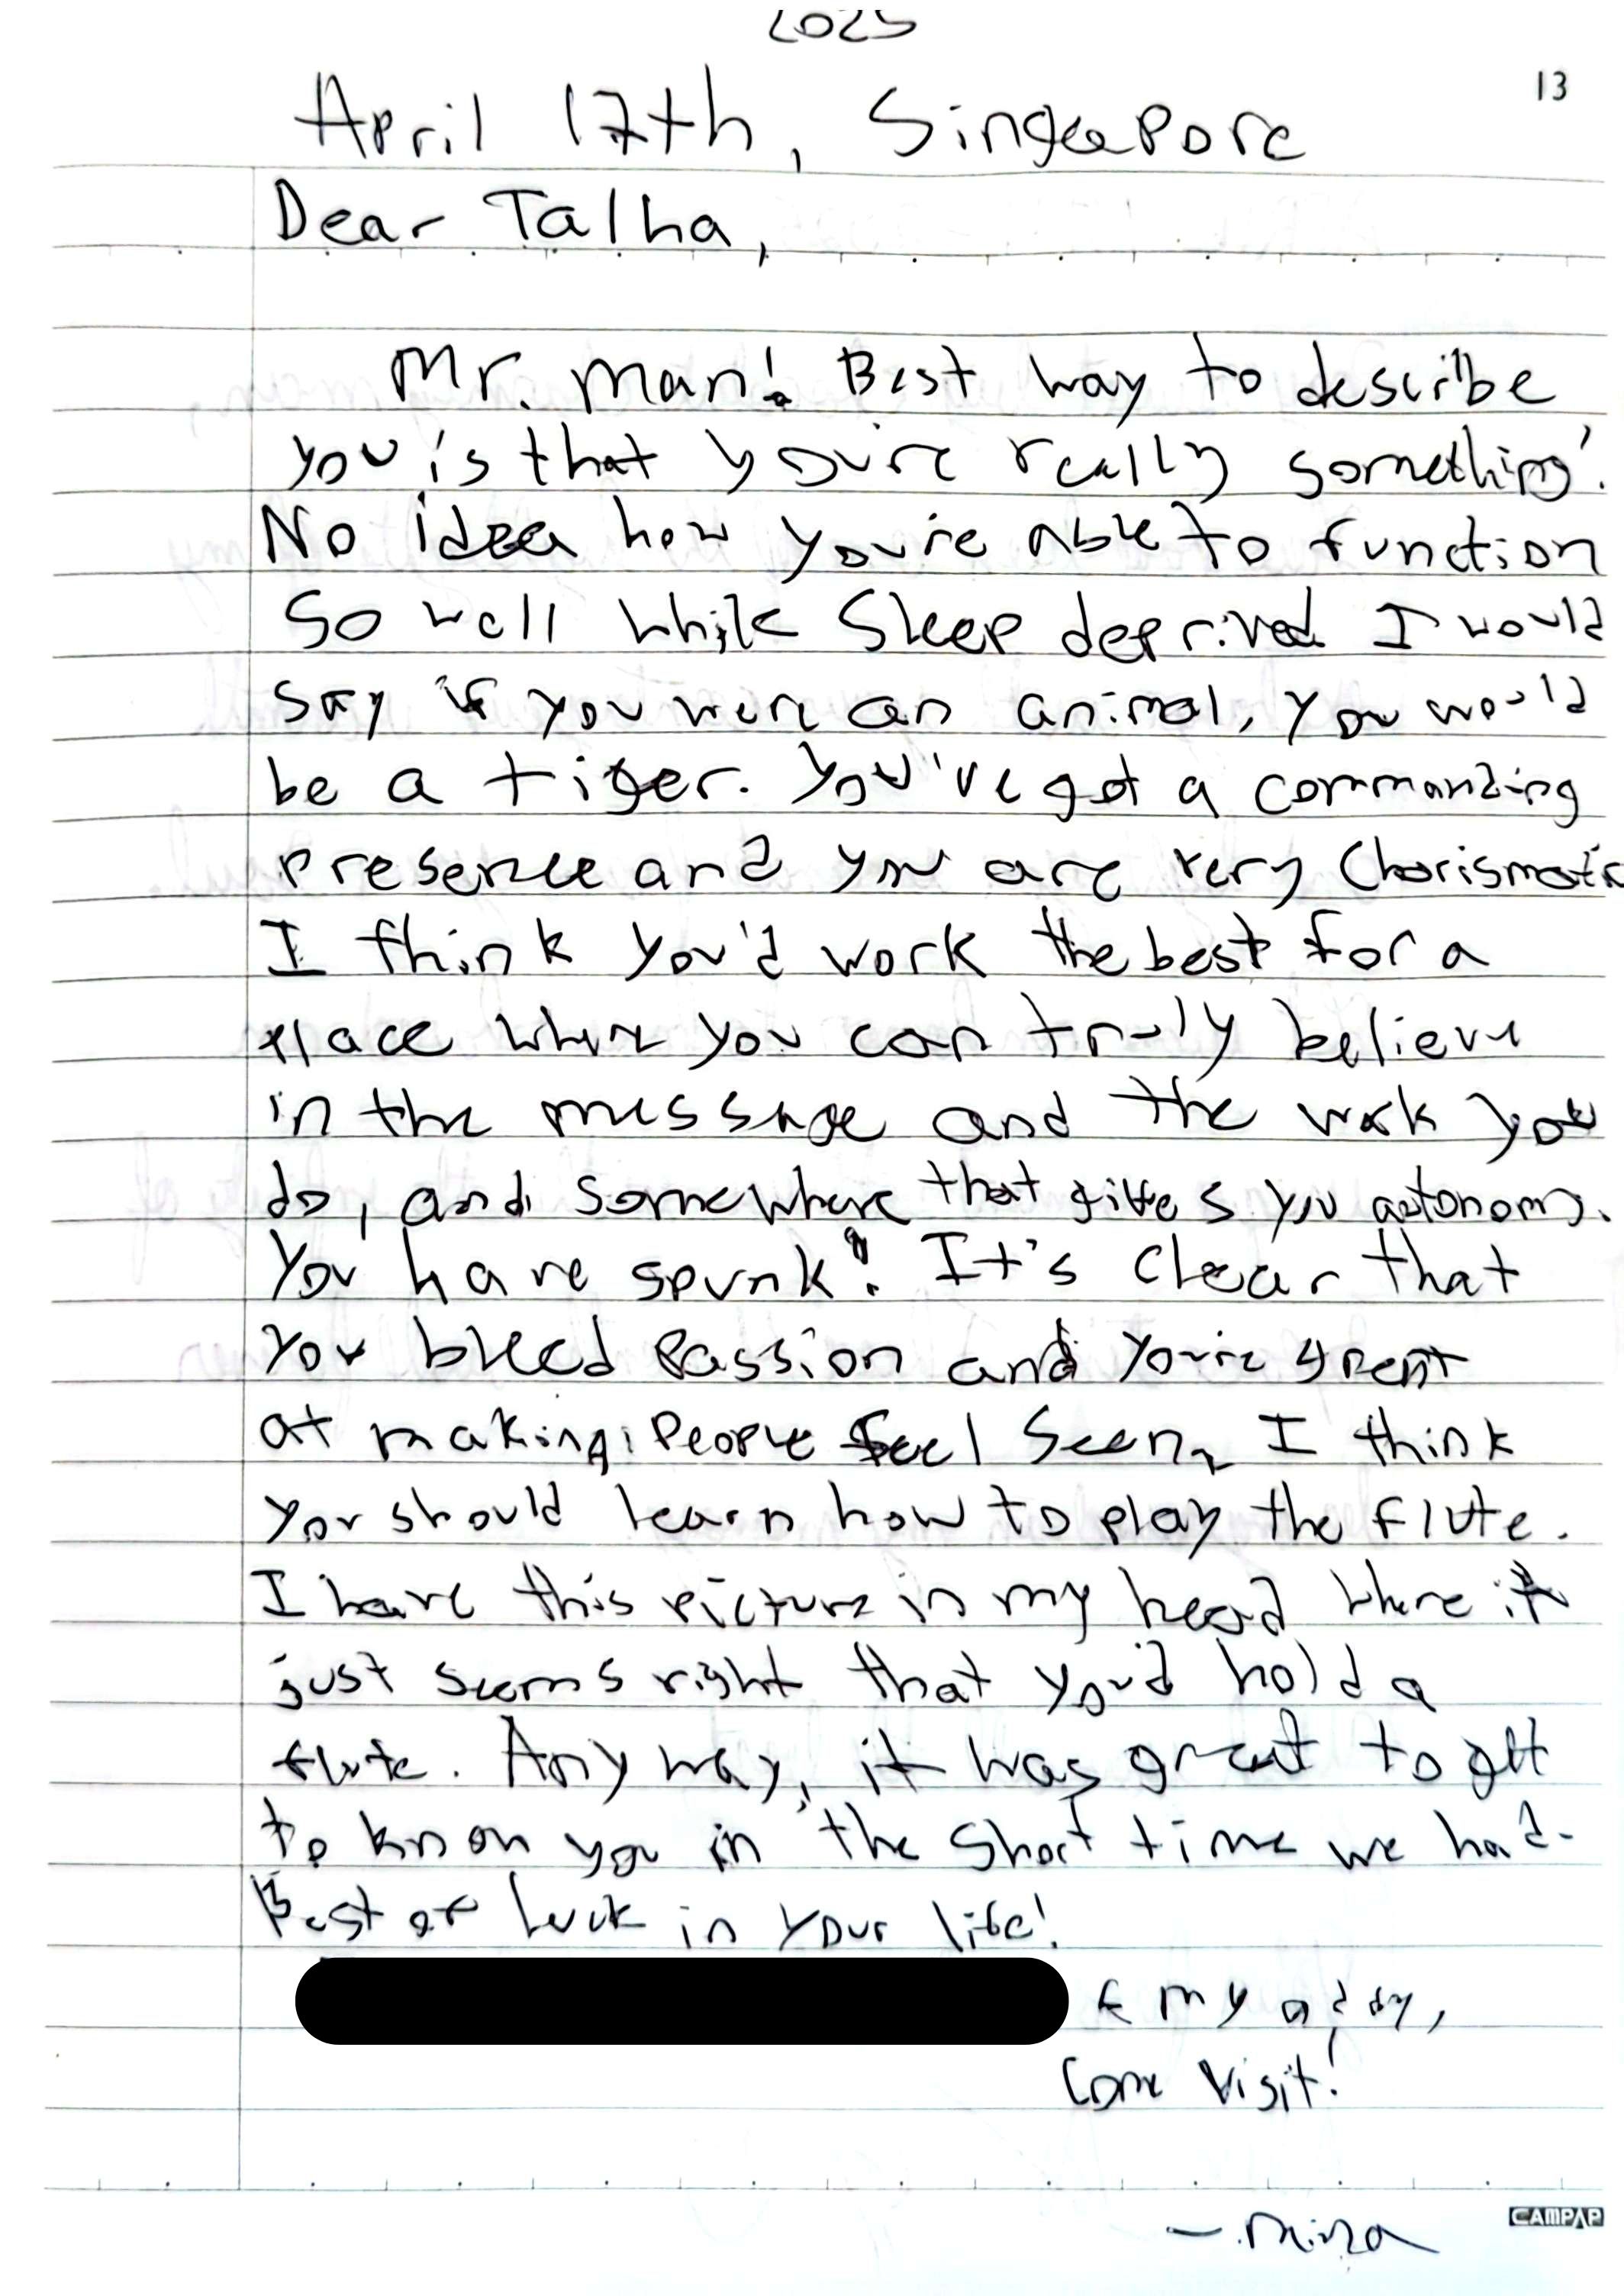 2025
13
April 17th, Singapore
Dear Talha,
Mr. Man! Best way to describe
you is that you're really something!
No idea how you're able to function
so well while sleep deprived I would
say if you were an animal, you would
be a tiger. You've got a commanding
presence and you are very charismatic
I think you'd work the best for a
place where you can truly believe
in the message and the work you
do, and somewhere that gives you autonomy.
You have spunk! It's clear that
you bleed passion and you're great
at making people feel seen, I think
you should learn how to play the flute.
I have this picture in my head where it
just seems right that you'd hold a
flute. Anyway, it was great to get
to know you in the short time we had.
Best of luck in your life!
my addy,
Come visit!
CAMPAP